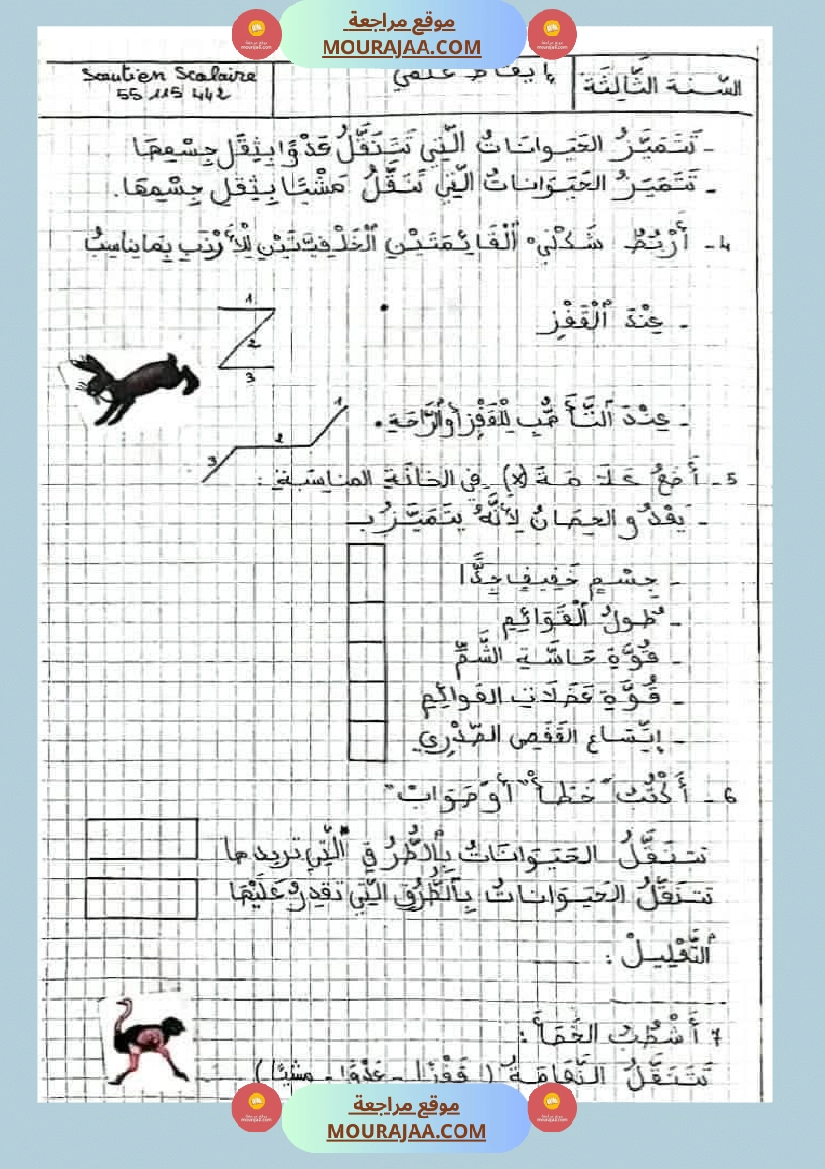 موقع مراجعة
MOURAJAA.COM
السّنة الثّالِثَة
إيقاظ علمي
Soutien Scolaire
55 115 442
- تَتَمَيَّزُ الحَيَوانَاتُ الّتِي تَتَنَقَّلُ عَدْوًا بِثِقَلِ جِسْمِهَا
- تَتَمَيَّزُ الحَيَوَانَاتُ الّتِي تَتَنَقَّلُ مَشْيًا بِثِقَلِ جِسْمِهَا.
4 - أَرْبُطُ شَكْلَيْ ٱلْقَائِمَتَيْنِ ٱلْخَلْفِيَّتَيْنِ لِلْأَرْنَبِ بِمَا يناسِبُ
- عِنْدَ ٱلْقَفْزِ
1
2
3
- عِنْدَ ٱلتَّأَهُّبِ لِلْقَفْزِ أَوْ ٱلرَّاحَةِ
1
2
3
5 - أَضَعُ عَلَامَةَ (x) في الخانَةِ المناسِبَةِ :
- يَعْدُو الحِصَانُ لِأَنَّهُ يَتَمَيَّزُ بـ
- جِسْمٍ خَفِيفٍ جِدًّا
- طُولِ ٱلْقَوَائِمِ
- قُوَّةِ حَاسَّةِ الشَّمِّ
- قُوَّةِ عَضَلَاتِ القَوائِمِ
- إِتِّسَاعِ القَفَصِ الصَّدْرِيِ
6 - أَكْتُبُ "خَطَأْ" أَوْ "صَوَابْ"
تتنَقَّلُ الحَيَوَانَاتُ بِٱلطُّرُقِ ٱلَّتِي تريدها
تتنَقَّلُ الحَيَوَانَاتُ بِٱلطُّرُقِ الّتِي تَقْدِرُ عَلَيْهَا
ٱلتَّعْلِيلُ :
7 أَشْطُبُ الخَطَأَ :
تَتَنَقَّلُ النَّعَامَةُ ( قَفْزًا - عَدْوًا - مشيًا )
موقع مراجعة
MOURAJAA.COM